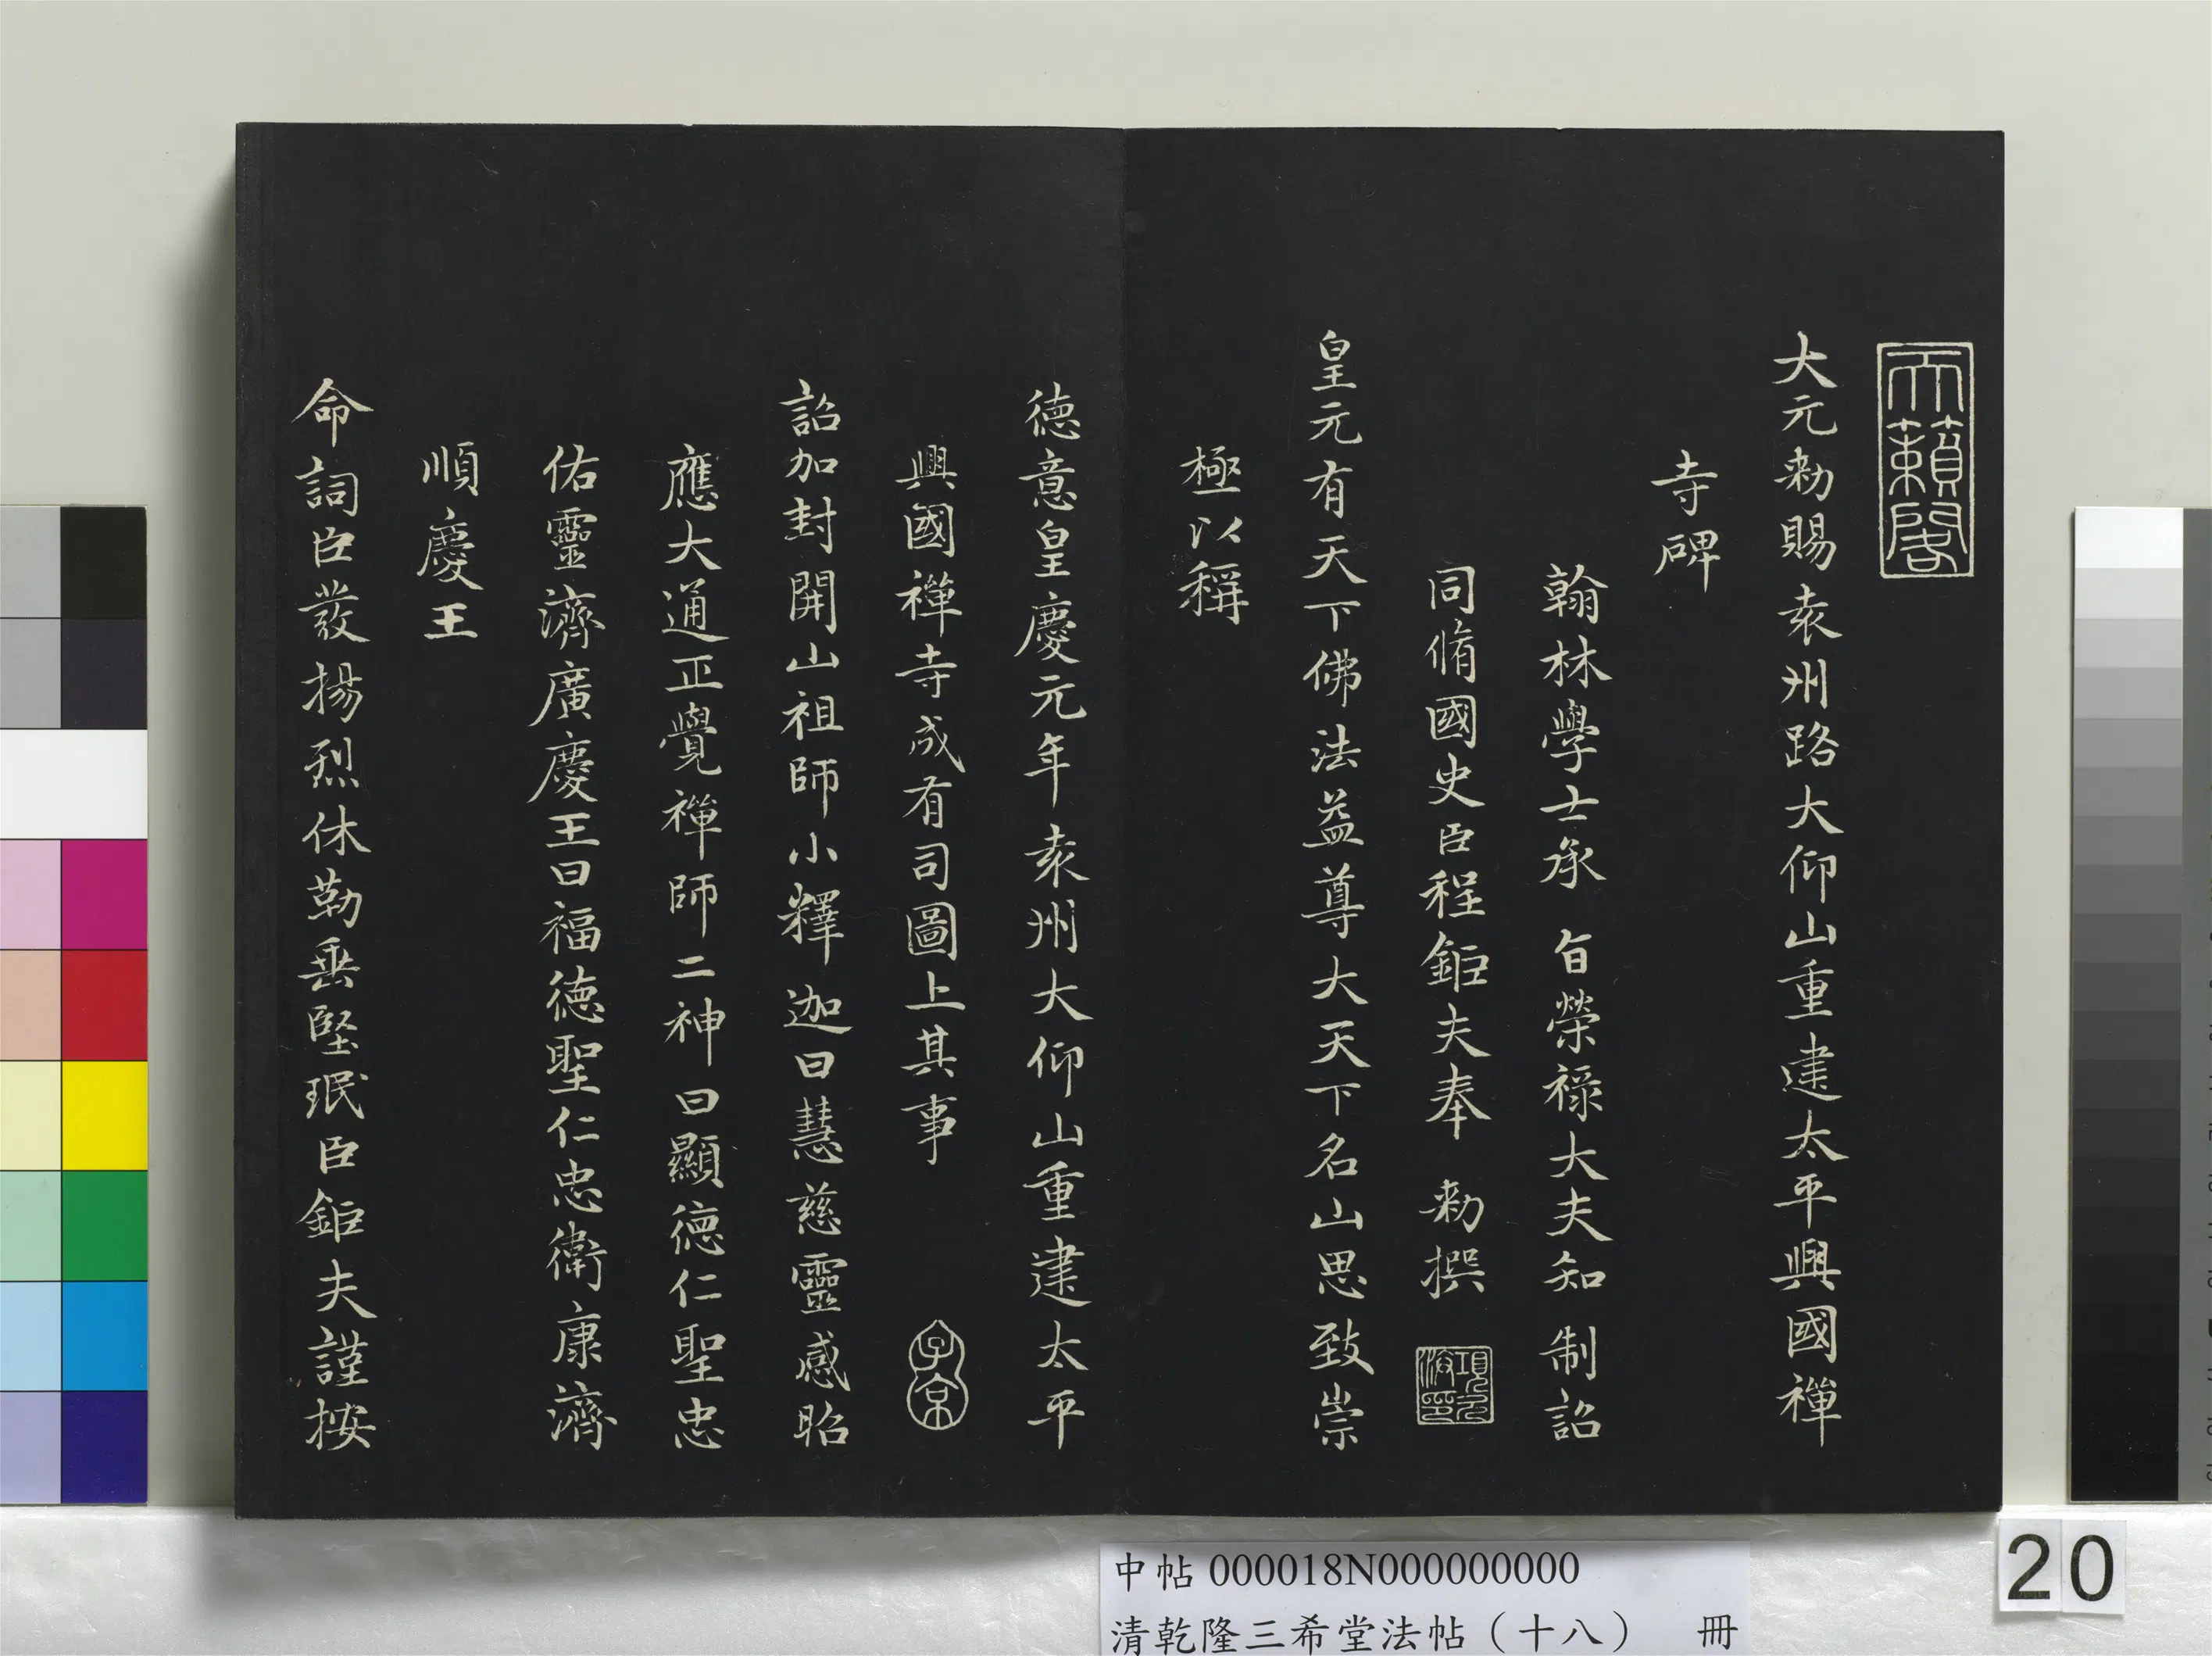 天籟閣
大元勑賜袁州路大仰山重建太平興國禪
寺碑
翰林學士承 旨榮祿大夫知 制詔
同脩國史臣程鉅夫奉 勑撰
項元汴印
皇元有天下佛法益尊大天下名山思致崇
極以稱
德意皇慶元年袁州大仰山重建太平
興國禪寺成有司圖上其事
子京
詔加封開山祖師小釋迦曰慧慈靈感昭
應大通正覺禪師二神曰顯德仁聖忠
佑靈濟廣慶王曰福德聖仁忠衛康濟
順慶王
命詞臣發揚烈休勒垂堅珉臣鉅夫謹按
中帖 000018N000000000
清乾隆三希堂法帖（十八） 冊
20